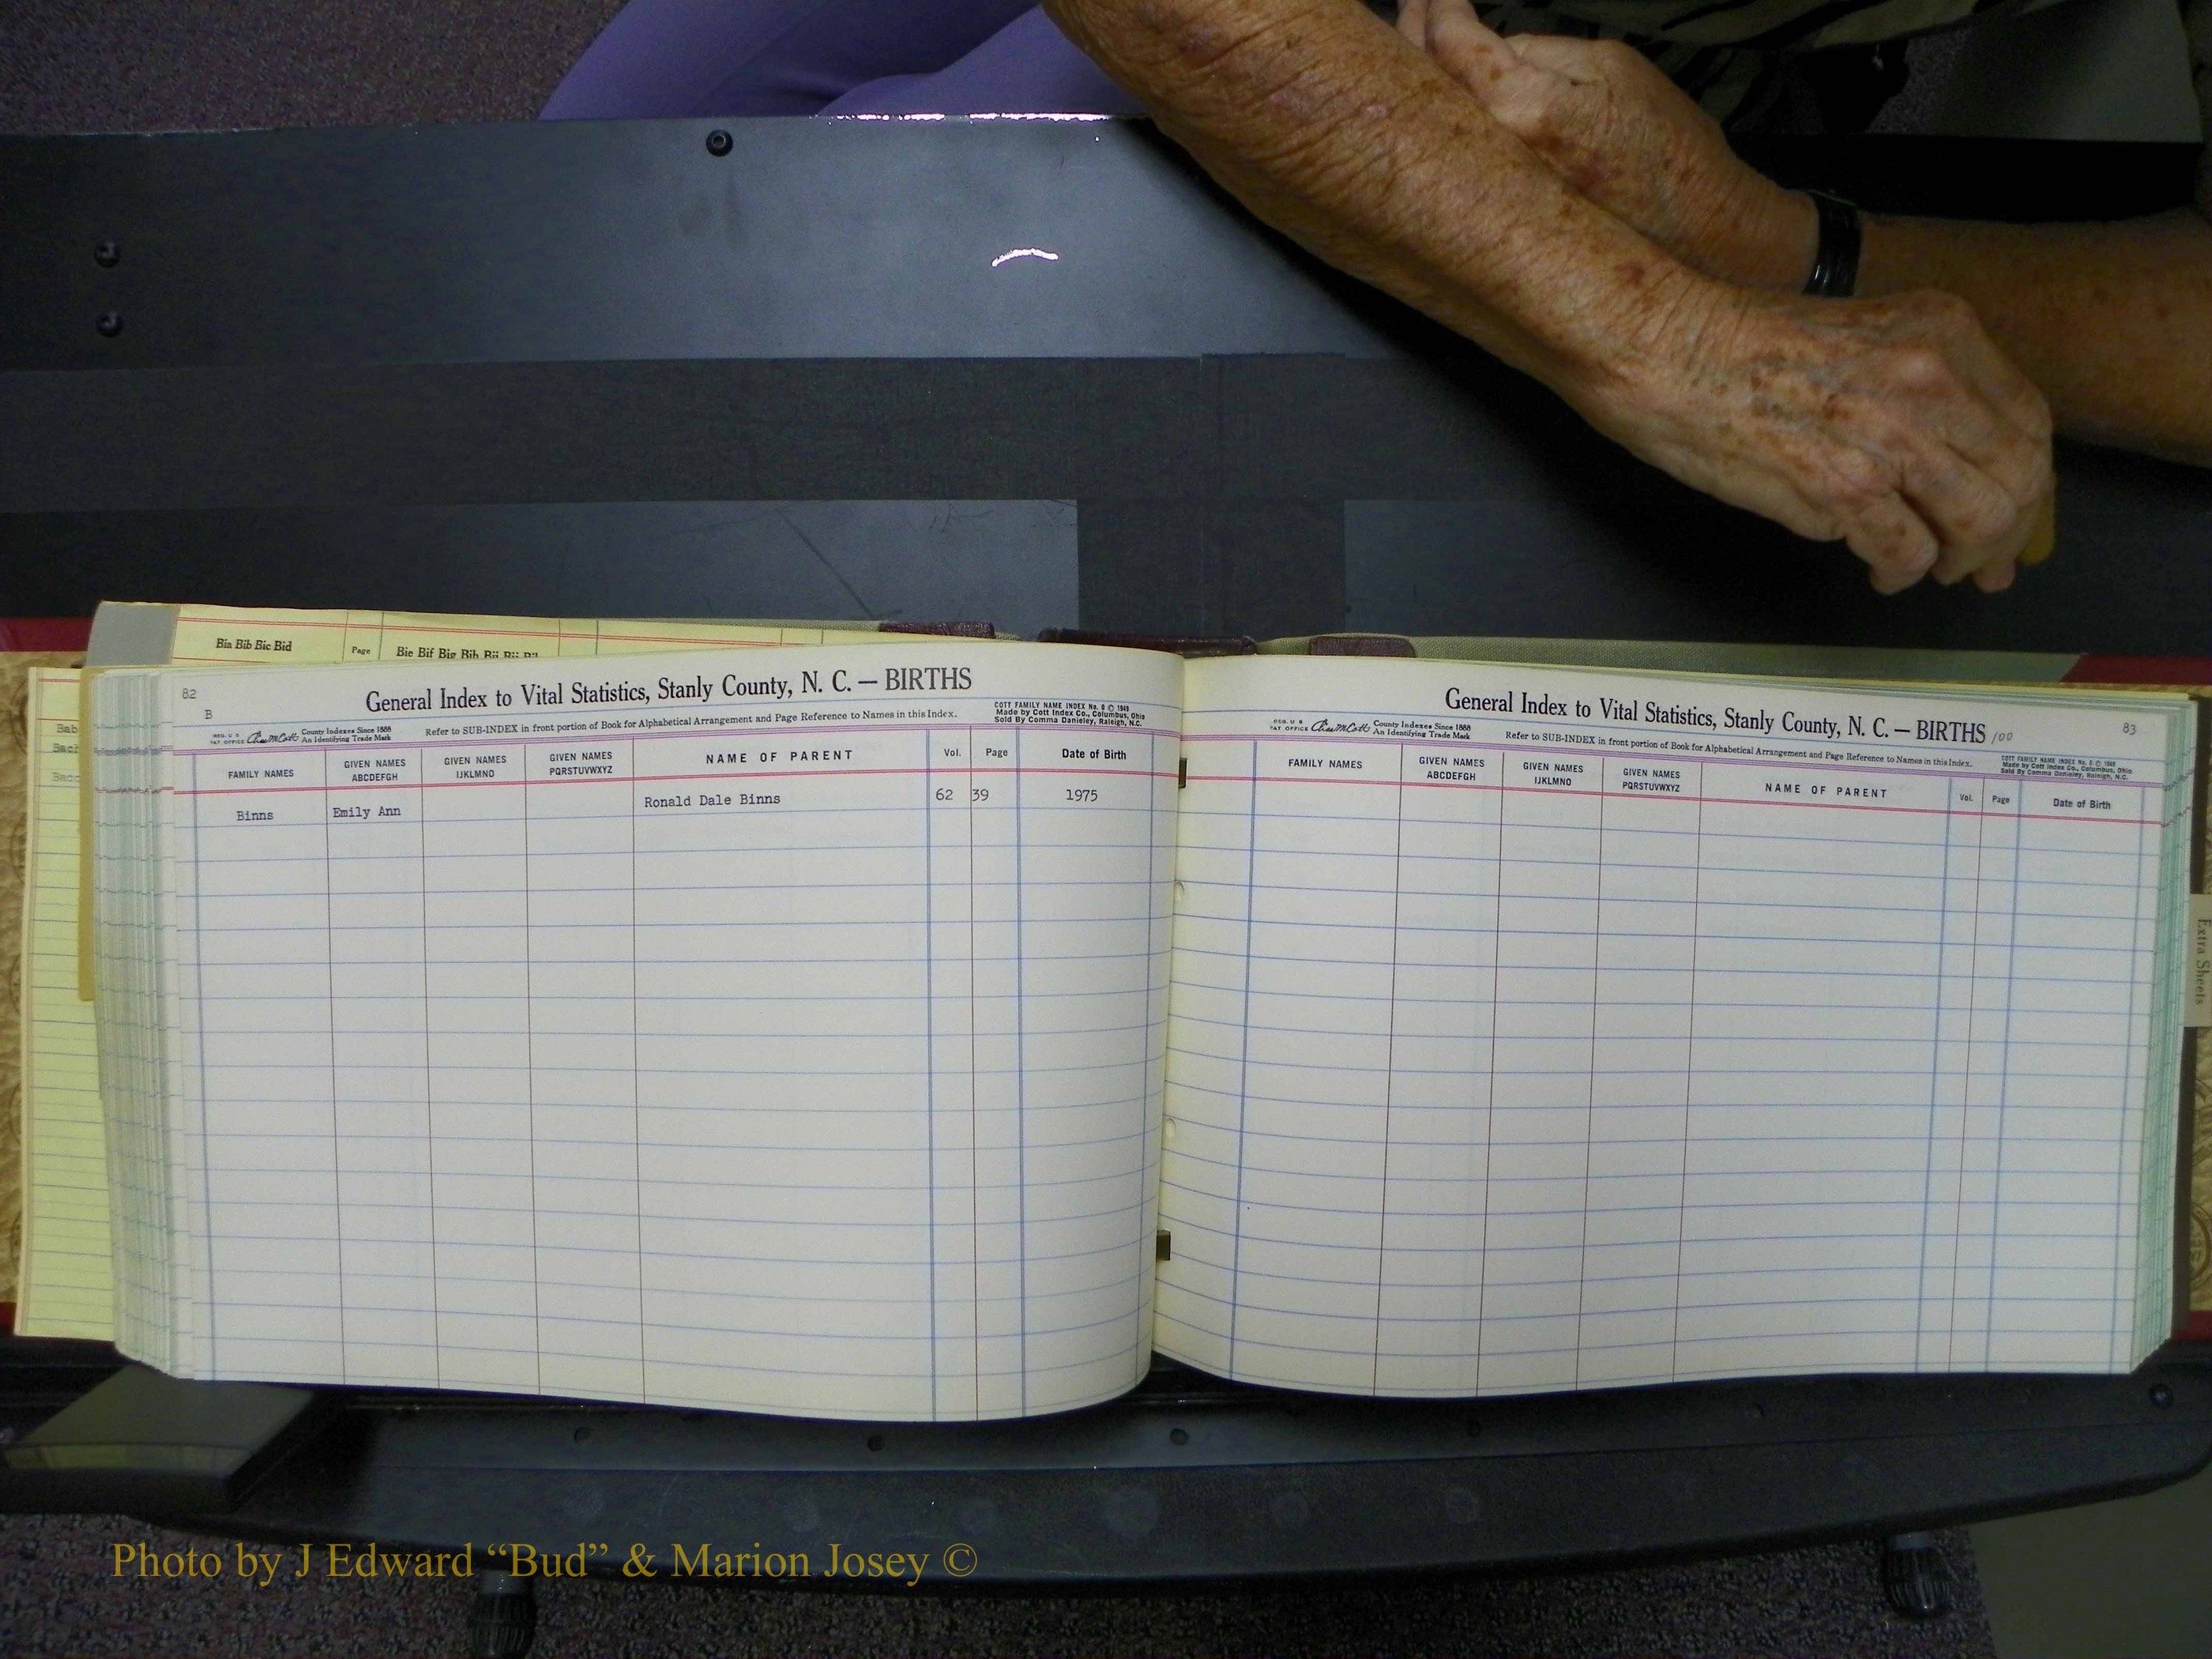 Bia Bib Bic Bid
Page
Bie Bif Big Bih Bii Bij
Bab
Bach
Baco
82
General Index to Vital Statistics, Stanly County, N. C. — BIRTHS
B
COTT FAMILY NAME INDEX No. 8 © 1949
Made by Cott Index Co., Columbus, Ohio
Sold By Comma Danieley, Raleigh, N.C.
REG. U S
PAT OFFICE
County Indexes Since 1888
An Identifying Trade Mark
Refer to SUB-INDEX in front portion of Book for Alphabetical Arrangement and Page Reference to Names in this Index.
FAMILY NAMES
GIVEN NAMES
ABCDEFGH
GIVEN NAMES
IJKLMNO
GIVEN NAMES
PQRSTUVWXYZ
NAME OF PARENT
Vol.
Page
Date of Birth
Binns Emily Ann Ronald Dale Binns 62 39 1975
General Index to Vital Statistics, Stanly County, N. C. — BIRTHS 100
83
REG. U S
PAT OFFICE
County Indexes Since 1888
An Identifying Trade Mark
Refer to SUB-INDEX in front portion of Book for Alphabetical Arrangement and Page Reference to Names in this Index.
COTT FAMILY NAME INDEX No. 8 © 1949
Made by Cott Index Co., Columbus, Ohio
Sold By Comma Danieley, Raleigh, N.C.
FAMILY NAMES
GIVEN NAMES
ABCDEFGH
GIVEN NAMES
IJKLMNO
GIVEN NAMES
PQRSTUVWXYZ
NAME OF PARENT
Vol.
Page
Date of Birth
Extra Sheets
Photo by J Edward “Bud” & Marion Josey ©